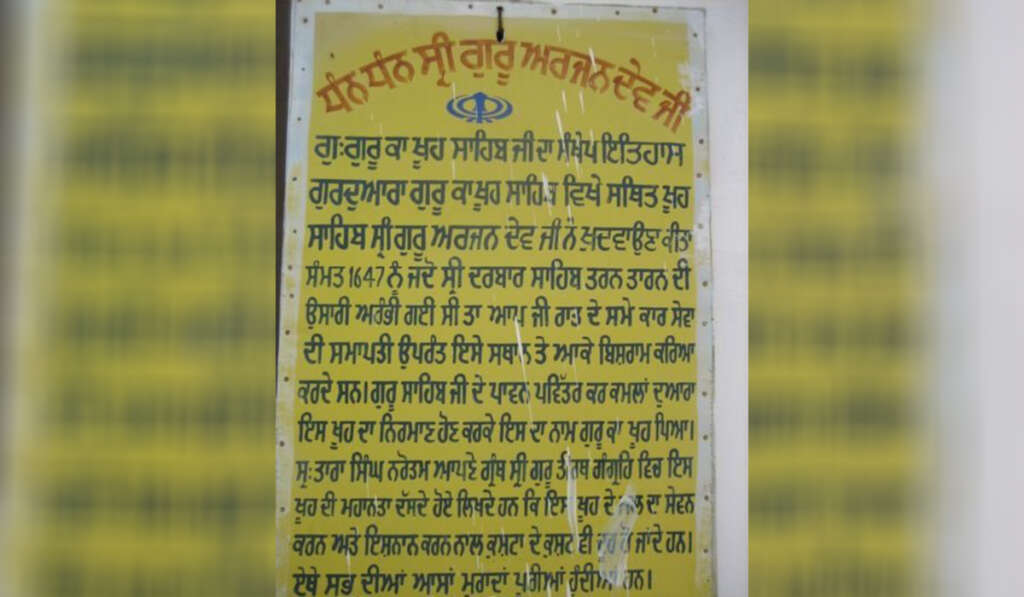 ਧੰਨ ਧੰਨ ਸ੍ਰੀ ਗੁਰੂ ਅਰਜਨ ਦੇਵ ਜੀ
ਗੁ:ਗੁਰੂ ਕਾ ਖੂਹ ਸਾਹਿਬ ਜੀ ਦਾ ਸੰਖੇਪ ਇਤਿਹਾਸ
ਗੁਰਦੁਆਰਾ ਗੁਰੂ ਕਾ ਖੂਹ ਸਾਹਿਬ ਵਿਖੇ ਸਥਿਤ ਖੂਹ
ਸਾਹਿਬ ਸ੍ਰੀ ਗੁਰੂ ਅਰਜਨ ਦੇਵ ਜੀ ਨੇ ਖੁਦਵਾਉਣਾ ਕੀਤਾ
ਸੰਮਤ 1647 ਨੂੰ ਜਦੋ ਸ੍ਰੀ ਦਰਬਾਰ ਸਾਹਿਬ ਤਰਨ ਤਾਰਨ ਦੀ
ਉਸਾਰੀ ਅਰੰਭੀ ਗਈ ਸੀ ਤਾ ਆਪ ਜੀ ਰਾਤ ਦੇ ਸਮੇ ਕਾਰ ਸੇਵਾ
ਦੀ ਸਮਾਪਤੀ ਉਪਰੰਤ ਇਸੇ ਸਥਾਨ ਤੇ ਆਕੇ ਬਿਸ਼ਰਾਮ ਕਰਿਆ
ਕਰਦੇ ਸਨ। ਗੁਰੂ ਸਾਹਿਬ ਜੀ ਦੇ ਪਾਵਨ ਪਵਿੱਤਰ ਕਰ ਕਮਲਾਂ ਦੁਆਰਾ
ਇਸ ਖੂਹ ਦਾ ਨਿਰਮਾਣ ਹੋਣ ਕਰਕੇ ਇਸ ਦਾ ਨਾਮ ਗੁਰੂ ਕਾ ਖੂਹ ਪਿਆ।
ਸ੍ਰ:ਤਾਰਾ ਸਿੰਘ ਨਰੋਤਮ ਆਪਣੇ ਗ੍ਰੰਥ ਸ੍ਰੀ ਗੁਰੂ ਤੀਰਥ ਗੰਗ੍ਰਹਿ ਵਿਚ ਇਸ
ਖੂਹ ਦੀ ਮਹਾਨਤਾ ਦੱਸਦੇ ਹੋਏ ਲਿਖਦੇ ਹਨ ਕਿ ਇਸ ਖੂਹ ਦੇ ਜਲ ਦਾ ਸੇਵਨ
ਕਰਨ ਅਤੇ ਇਸ਼ਨਾਨ ਕਰਨ ਨਾਲ ਕੁਸ਼ਟਾ ਦੇ ਕੁਸ਼ਟ ਵੀ ਦੂਰ ਹੋ ਜਾਂਦੇ ਹਨ।
ਏਥੇ ਸਭ ਦੀਆਂ ਆਸਾਂ ਮੁਰਾਦਾਂ ਪੂਰੀਆਂ ਹੁੰਦੀਆਂ ਹਨ।